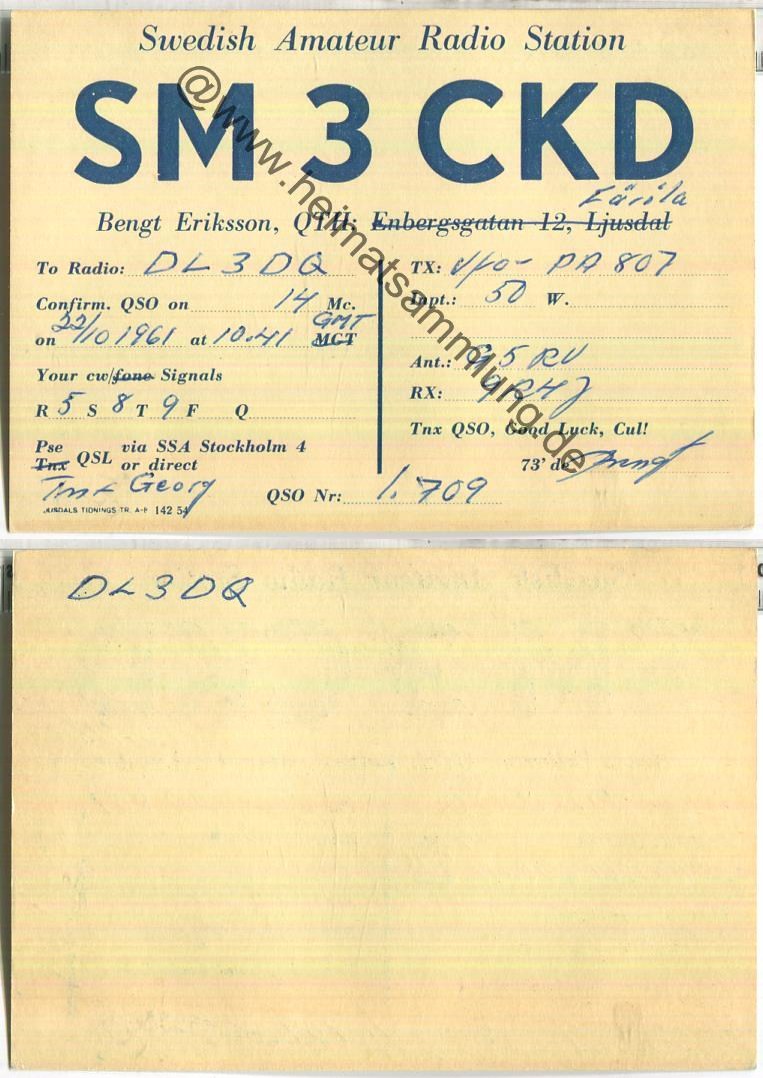 Swedish Amateur Radio Station
SM 3 CKD
Färila
Bengt Eriksson, QTH: Enbergsgatan 12, Ljusdal
To Radio: DL3DQ
Confirm. QSO on 14 Mc.
GMT
on 22/10 1961 at 10.41 MGT
Your cw/fone Signals
R 5 S 8 T 9 F Q
Pse
Tnx QSL via SSA Stockholm 4
or direct
Tnx Georg
QSO Nr: 1.709
LJUSDALS TIDNINGS TR. A-B 142 54
TX: vfo- PA 807
Inpt.: 50 W.
Ant.: G5RV
RX: 9R4J
Tnx QSO, Good Luck, Cul!
73' de Bengt
@www.heimatsammlung.de
DL3DQ